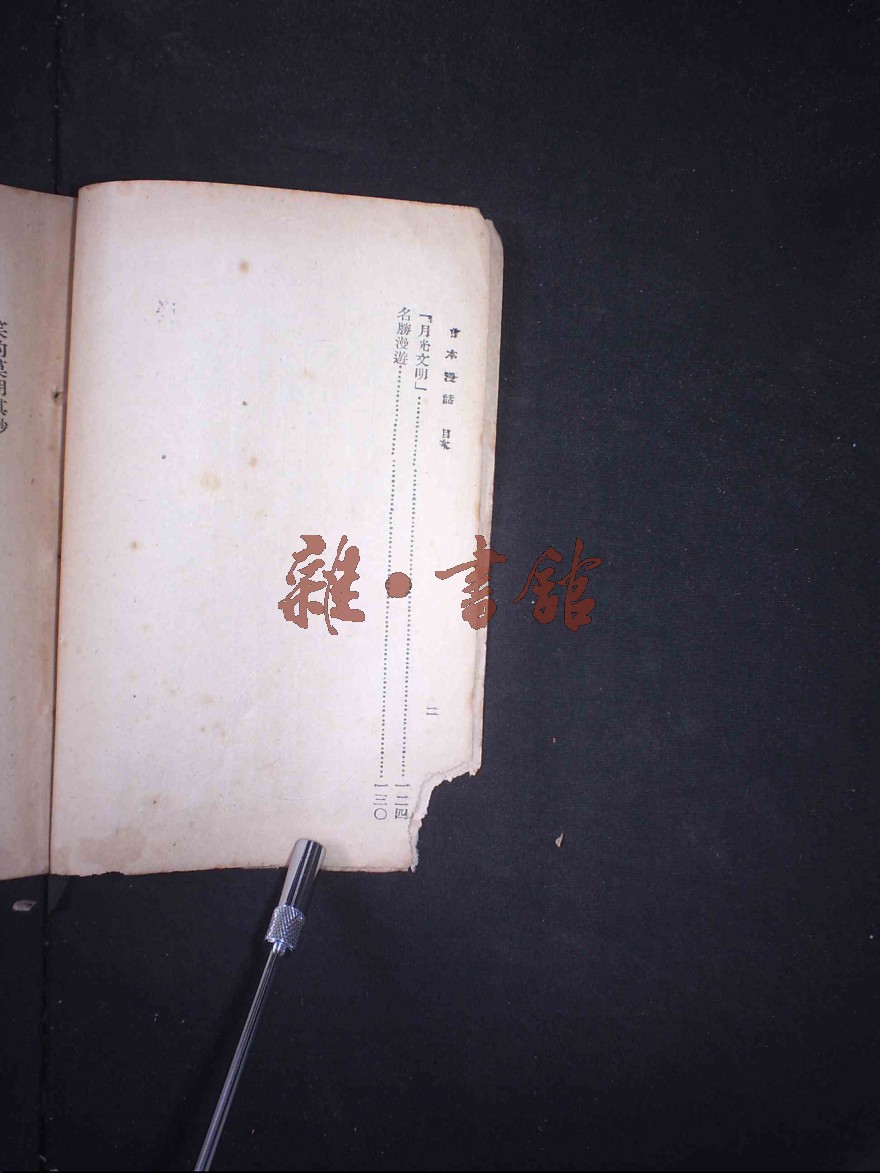 日本漫話 目次 二
「月光文明」……一二四
名勝漫遊……一三〇
雜•書館